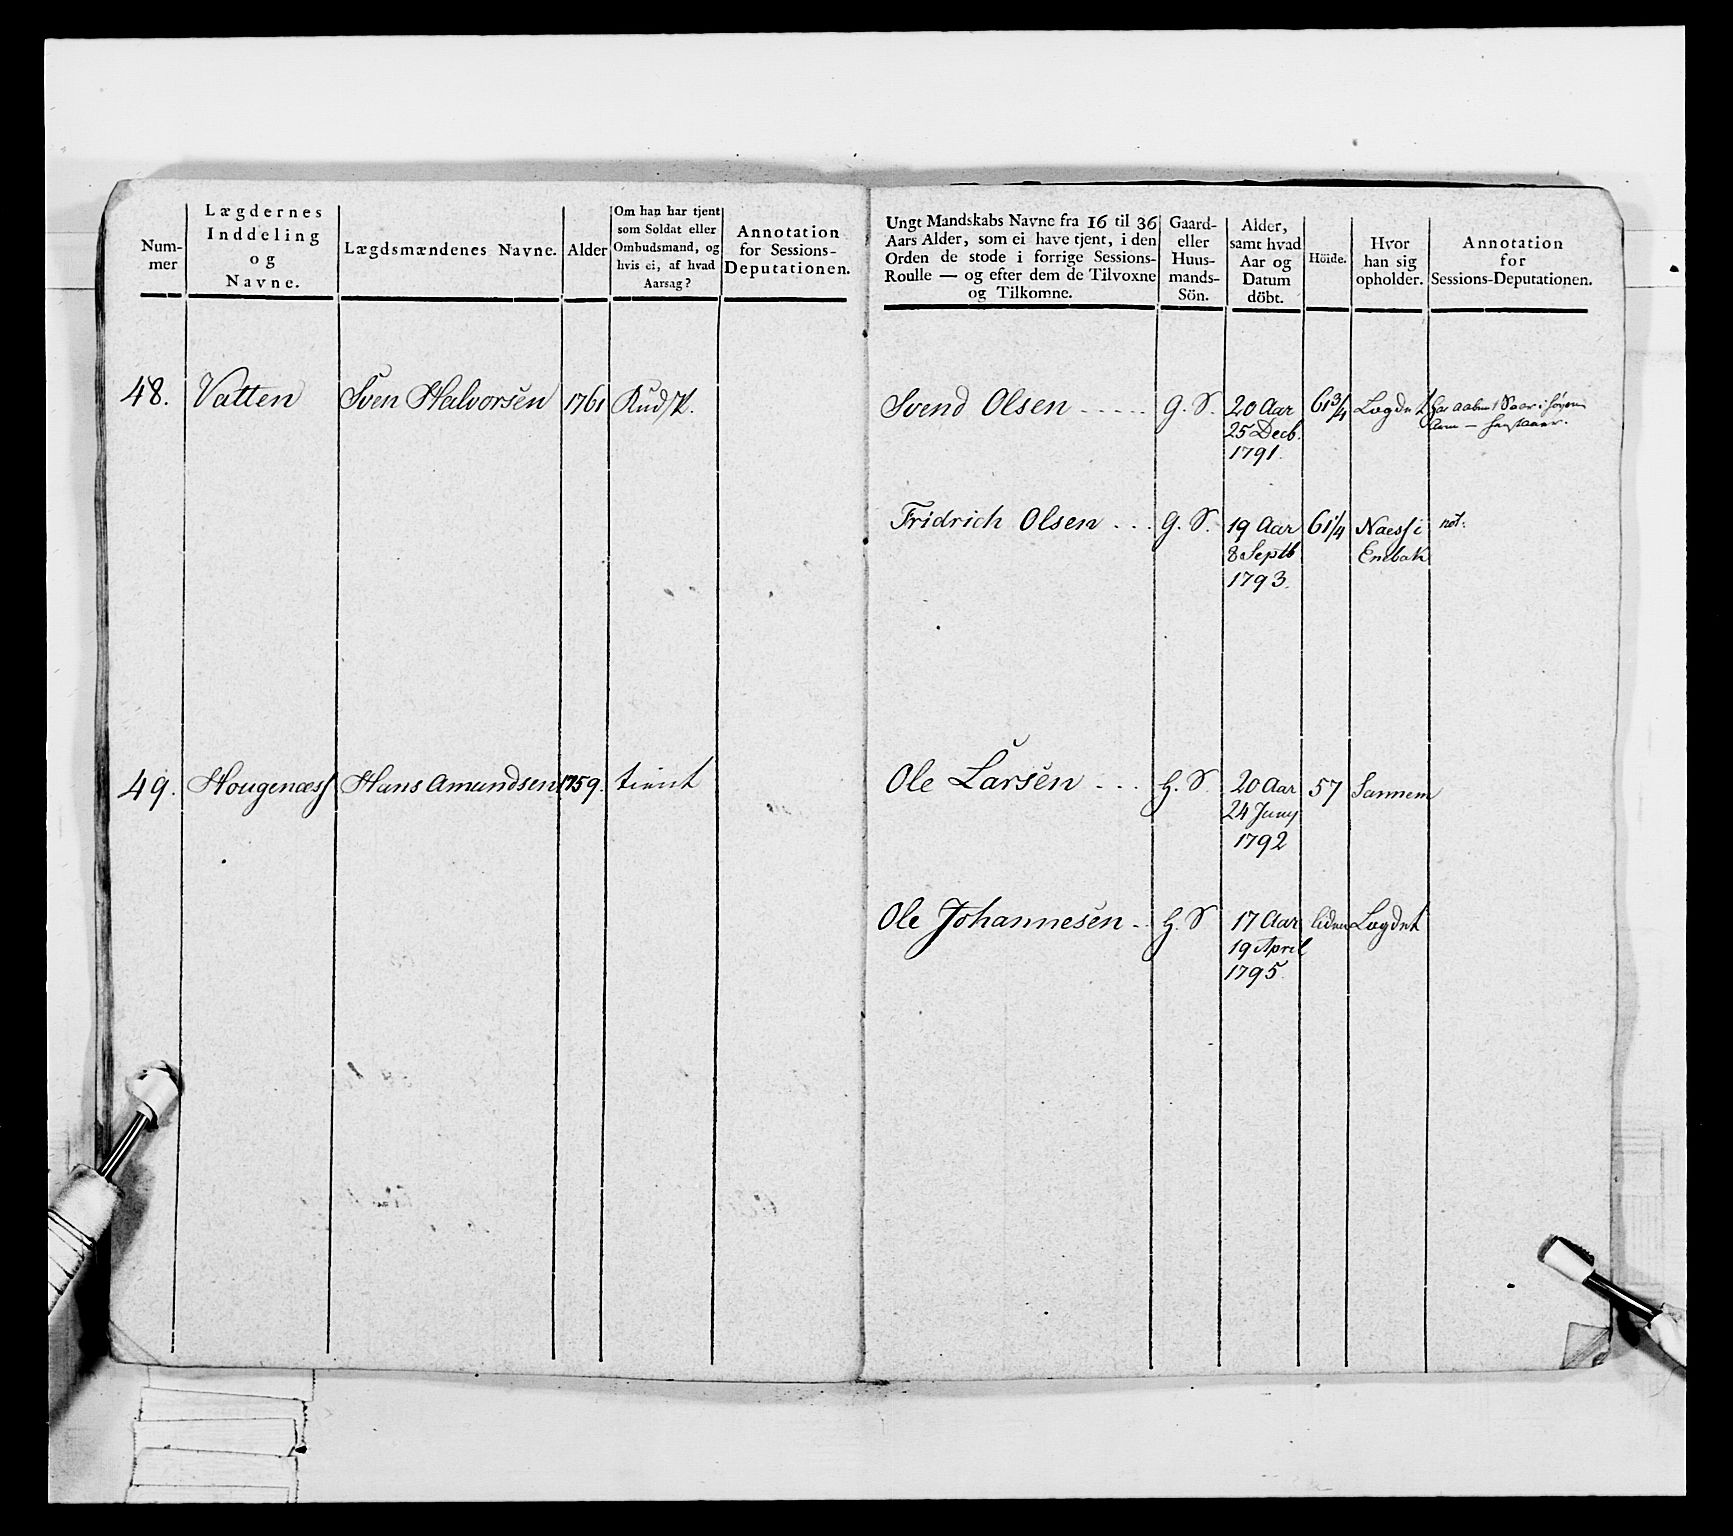 Num-
mer
Lægdernes
Inddeling
og
Navne.
Lægdsmændenes Navne.
Alder
Om han har tjent
som Soldat eller
Ombudsmand, og
hvis ei, af hvad
Aarsag?
Annotation
for Sessions-
Deputationen.
Ungt Mandskabs Navne fra 16 til 36
Aars Alder, som ei have tjent, i den
Orden de stode i forrige Sessions-
Roulle — og efter dem de Tilvoxne
og Tilkomne.
Gaard-
eller
Huus-
mands-
Sön.
Alder,
samt hvad
Aar og
Datum
döbt.
Höide.
Hvor
han sig
opholder.
Annotation
for
Sessions-Deputationen.
48. Vatten Sven Halvorsen 1761
Svend Olsen - - - - - G. S. 20 Aar 61 3/4 Lægdet
25 Decb.
1791.
Fridrich Olsen . . . G. S. 19 Aar 61 1/4 Naess i not:
8 Septb Enebak
1793.
49. Hougenæss Hans Amundsen 1759. tient
Ole Larsen - - - H. S. 20 Aar 57 Sannem
24 Juny
1792
Ole Johannesen - - H. S 17 Aar liden Lægdet
19 April
1795.